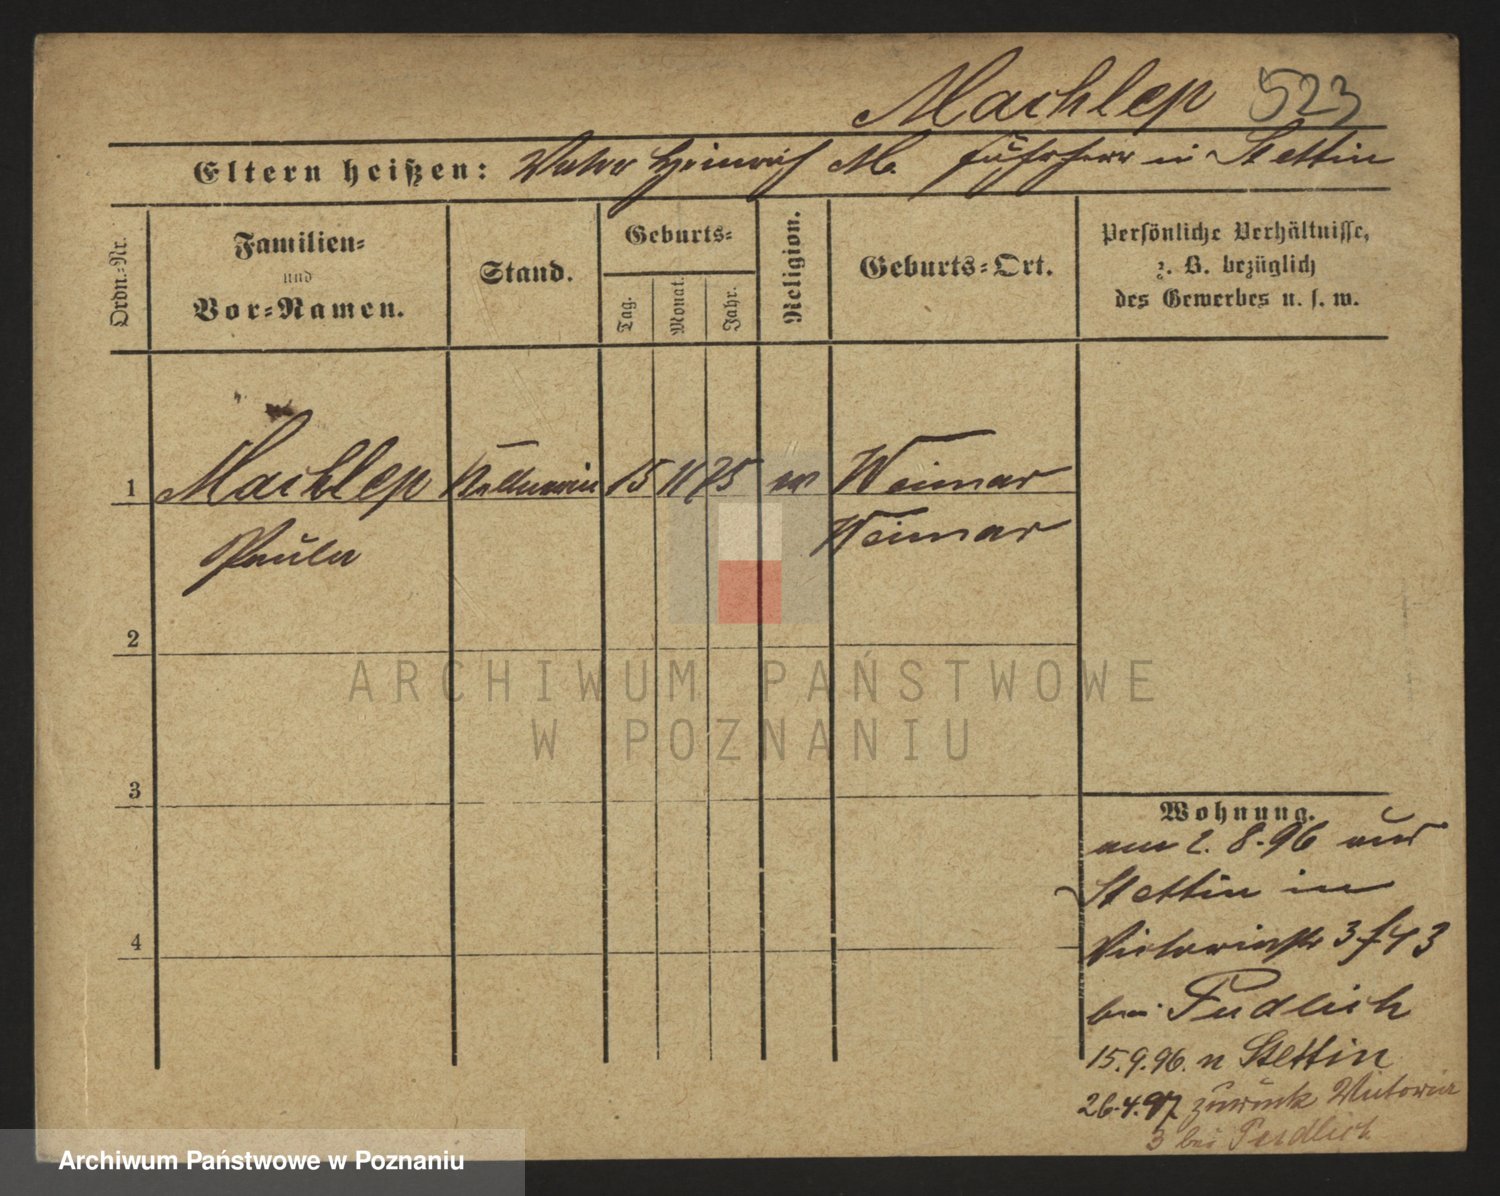 Machlep 523
Eltern heißen: Vater Heinrich M. Fuhrherr in Stettin
Ordn.=Nr.
Familien=
und
Vor=Namen.
Stand.
Geburts=
Tag.
Monat.
Jahr.
Religion.
Geburts=Ort.
Persönliche Verhältnisse,
z. B. bezüglich
des Gewerbes u. s. w.
1 Machlep Kellnerin 15 11 75 Weimar
Paula Weimar
2
3
4
Wohnung.
am 2. 8. 96 aus
Stettin in
Victoriastr 3
bei Pudlich
15.9.96. n Stettin
26.4.97 zurück Victoria
3 bei Pudlich
ARCHIWUM PAŃSTWOWE
W POZNANIU
Archiwum Państwowe w Poznaniu